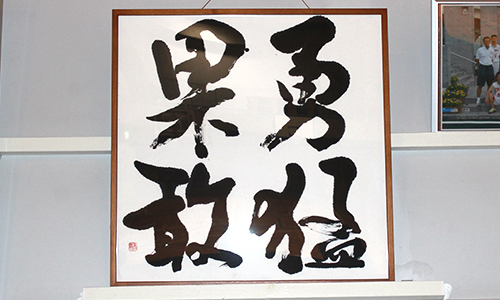 勇猛
果敢